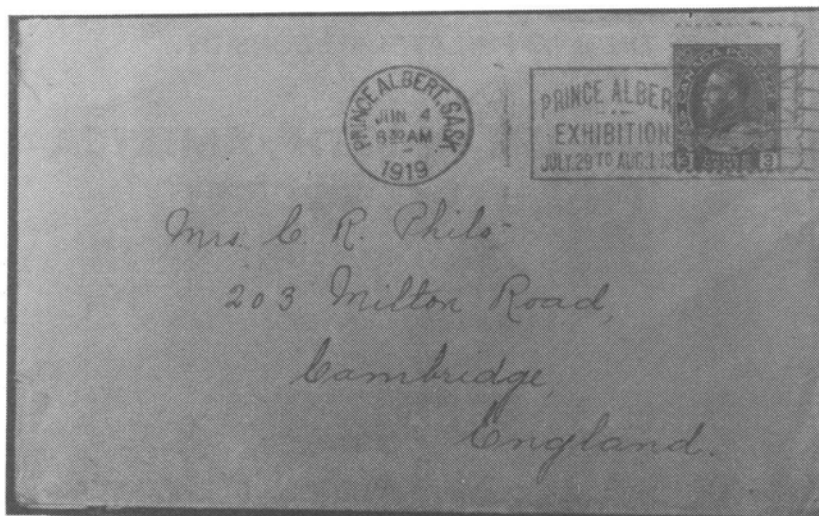 PRINCE ALBERT, SASK.
JUN 4
1919
PRINCE ALBER
EXHIBITION
JULY.29 TO AUG.1
CANADA POSTAGE
3 3
Mrs. C. R. Philo
203 Milton Road,
Cambridge,
England.